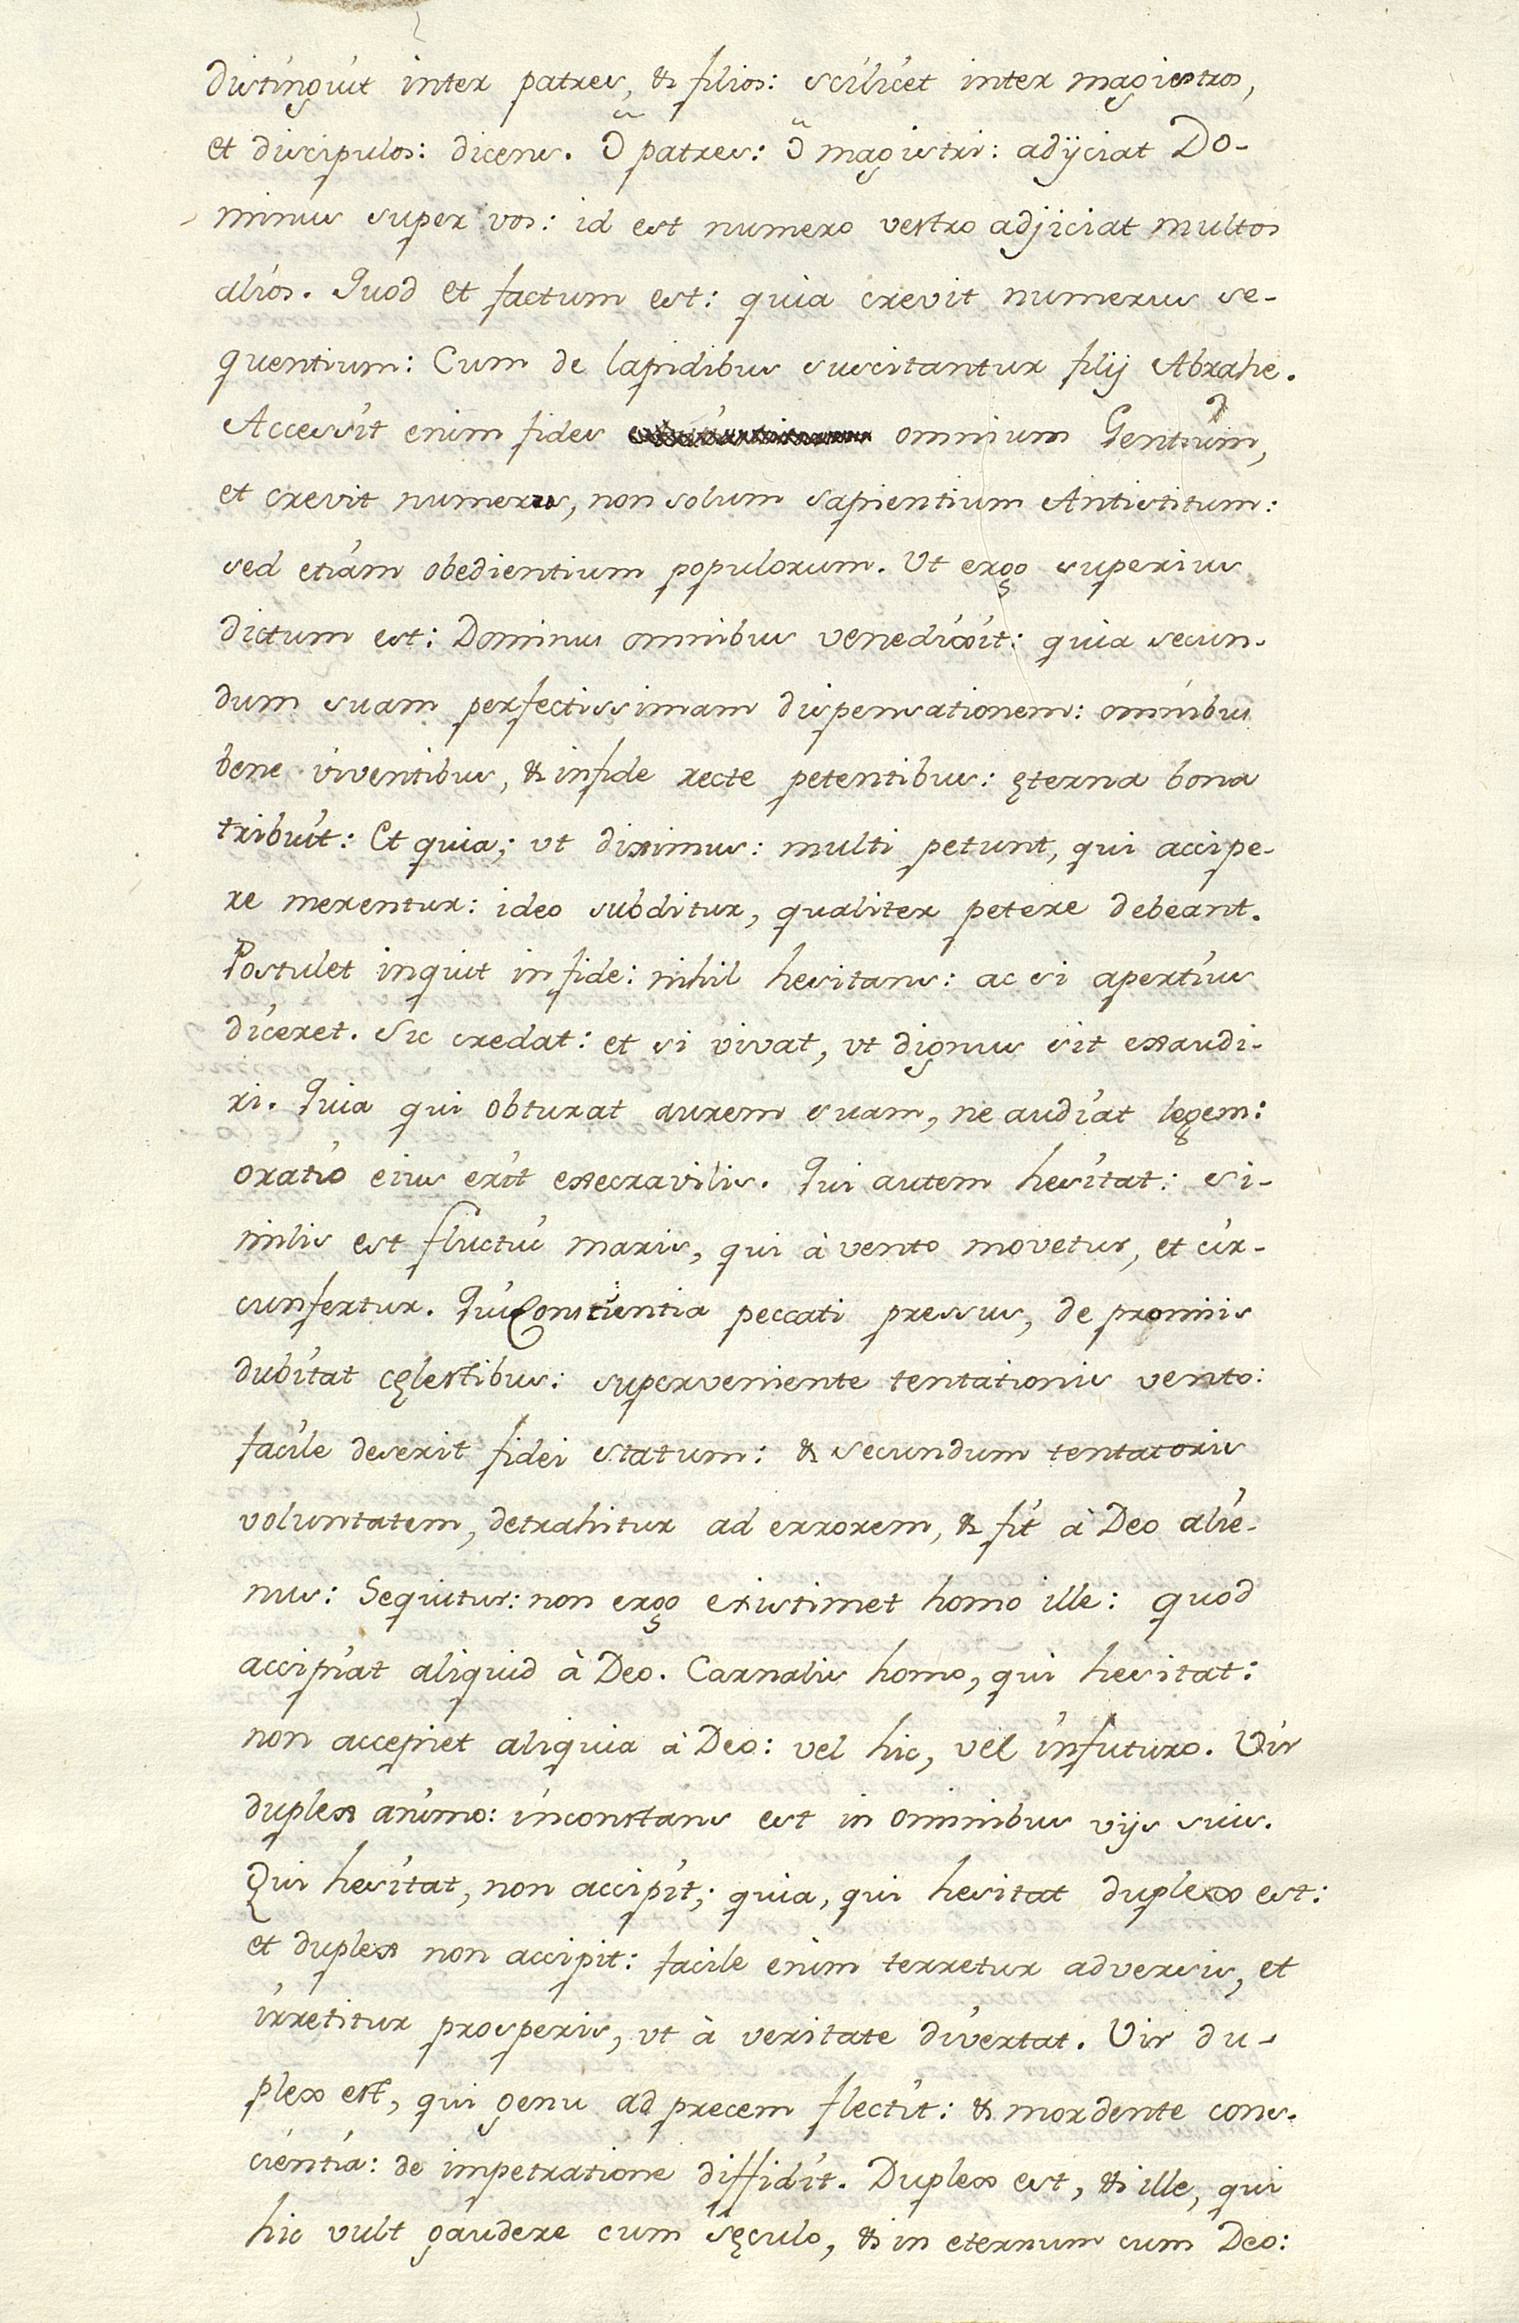 distinguit inter patres, & filios: scilicet inter magistros,
et discipulos: dicens. Õ patres: õ magistri: adijciat Do-
minus super vos: id est numero vestro adjiciat multos
alios. Quod et factum est: quia crevit numerus se-
quentium: Cum de lapidibus suscitantur filij Abrahe.
Accessit enim fides omnium Gentium,
et crevit numerus, non solum sapientium Antistitum:
sed etiam obedientium populorum. Ut ergo superius
dictum est: Dominus omnibus venedixit: quia secun-
dum suam perfectissimam dispensationem: omnibus
bene viventibus, & in fide recte petentibus: ęterna bona
tribuit: Et quia; ut diximus: multi petunt, qui accipe-
re merentur: ideo subditur, qualiter petere debeant.
Postulet inquit in fide: nihil hesitans: ac si apertius
diceret. Sic credat: et si vivat, ut dignus sit exaudi-
ri. Quia qui obturat aurem suam, ne audiat legem:
oratio eius erit execravilis. Qui autem hesitat: si-
milis est fluctui maris, qui à vento movetur, et cir-
cunfertur. Qui Constientia peccati pressus, de promis
dubitat cęlestibus: superveniente tentationis vento:
facile deserit fidei statum: & secundum tentatoris
voluntatem, detrahitur ad errorem, & fit à Deo alie-
nus: Sequitur: non ergo existimet homo ille: quod
accipiat aliquid à Deo. Carnalis homo, qui hesitat:
non accepiet aliquia à Deo: vel hic, vel in futuro. Vir
duplex animo: inconstans est in omnibus vijs suis.
Qui hesitat, non accipit; quia, qui hesitat duplex est:
et duplex non accipit: facile enim terretur adversis, et
irretitur prosperis, ut à veritate divertat. Vir du-
plex est, qui genu ad precem flectit: & mordente cons-
cientia: de impetratione diffidit. Duplex est, & ille, qui
hic vult gaudere cum sęculo, & in eternum cum Deo: